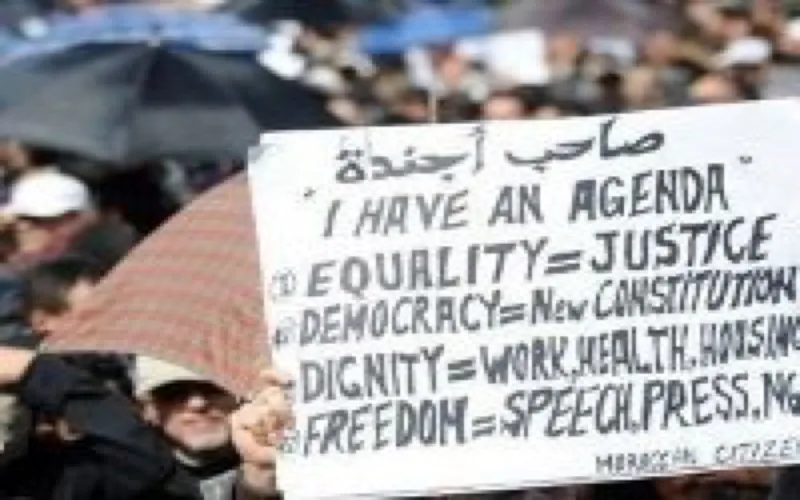 صاحب أجندة
"I HAVE AN AGENDA"
① EQUALITY = JUSTICE
② DEMOCRACY = New CONSTITUTION
DIGNITY = WORK, HEALTH, HOUSING
FREEDOM = SPEECH, PRESS,
MOROCCAN CITIZEN